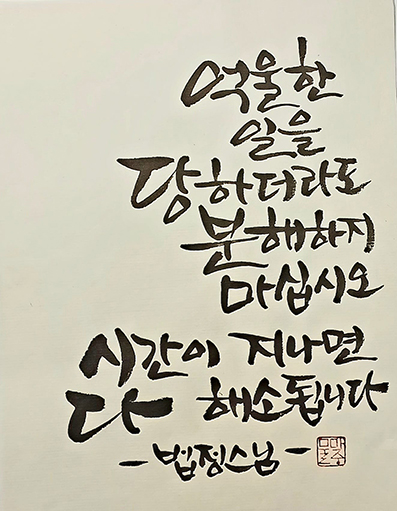 억울한
일을
당하더라도
분해하지
마십시오
시간이 지나면
다 해소됩니다
-법정스님-